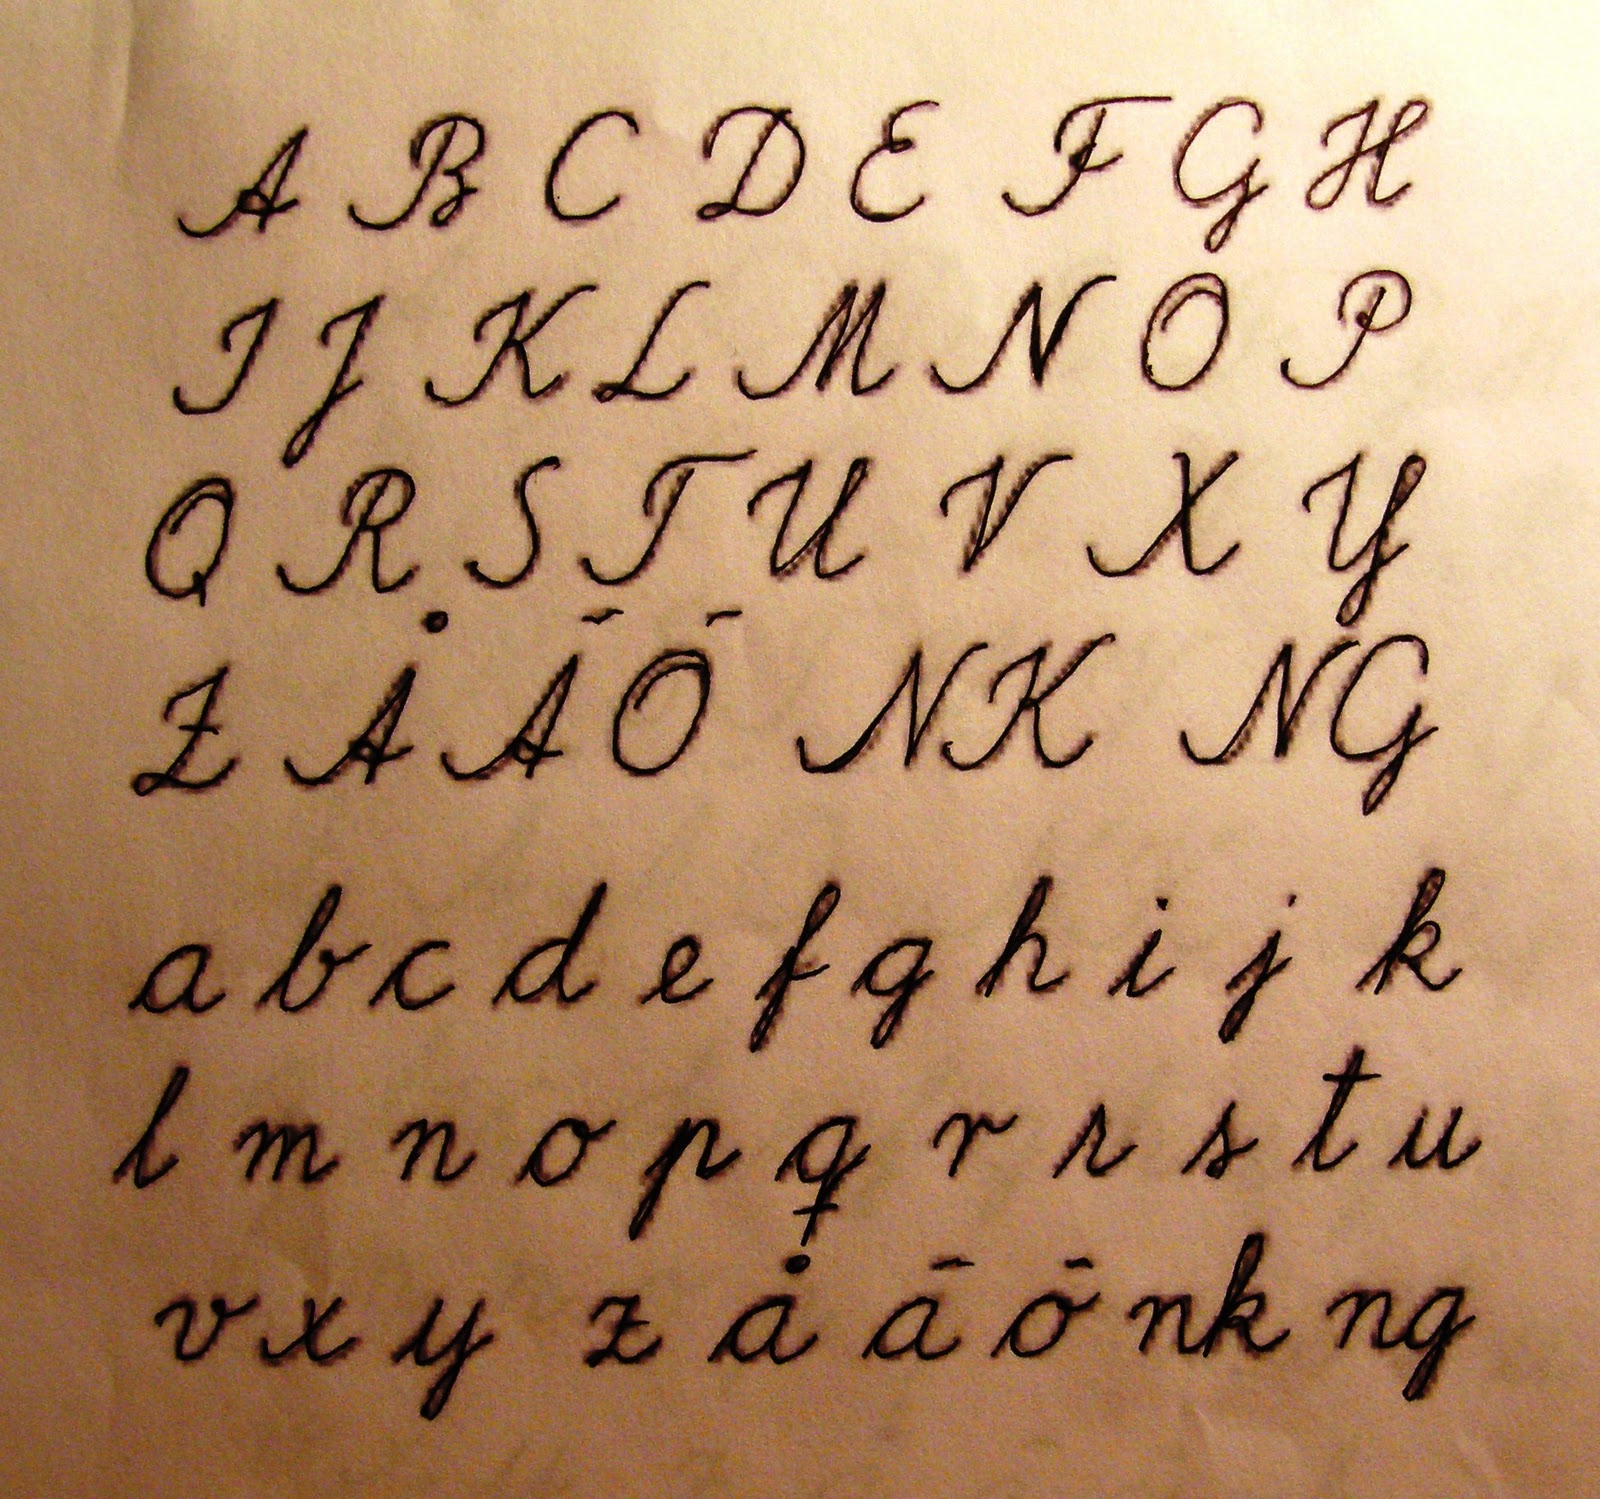 A B C D E F G H
I J K L M N O P
Q R S T U V X Y
Z Å Ā Ō NK NG
a b c d e f g h i j k
l m n o p q r r s t u
v x y z å ā ō nk ng